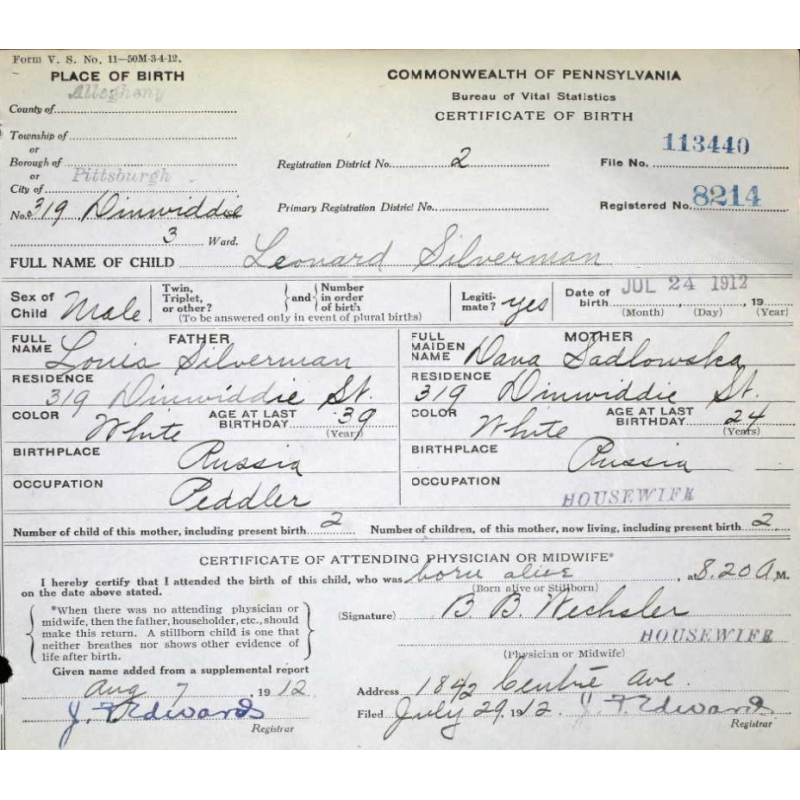 Form V. S. No. 11—50M-3-4-12.
PLACE OF BIRTH
COMMONWEALTH OF PENNSYLVANIA
Allegheny
County of
Bureau of Vital Statistics
CERTIFICATE OF BIRTH
Township of
or
Borough of
or
Pittsburgh
City of
Registration District No. 2
113440
File No.
No. 319 Dinwiddie
Primary Registration District No.
Registered No. 8214
3 Ward.
FULL NAME OF CHILD Leonard Silverman
Sex of Child Male
Twin, Triplet, or other?
and
Number in order of birth
(To be answered only in event of plural births)
Legiti- mate? yes
Date of birth JUL 24 1912, 19
(Month) (Day) (Year)
FATHER
FULL NAME Louis Silverman
MOTHER
FULL MAIDEN NAME Dava Sadlowska
RESIDENCE
319 Dinwiddie St.
RESIDENCE
319 Dinwiddie St.
COLOR White
AGE AT LAST BIRTHDAY 39
(Years)
COLOR White
AGE AT LAST BIRTHDAY 24
(Years)
BIRTHPLACE
Russia
BIRTHPLACE
Russia
OCCUPATION
Peddler
OCCUPATION
HOUSEWIFE
Number of child of this mother, including present birth 2
Number of children, of this mother, now living, including present birth 2
CERTIFICATE OF ATTENDING PHYSICIAN OR MIDWIFE*
I hereby certify that I attended the birth of this child, who was born alive, at 8.20 A M.
on the date above stated.
(Born alive or Stillborn)
*When there was no attending physician or
midwife, then the father, householder, etc., should
make this return. A stillborn child is one that
neither breathes nor shows other evidence of
life after birth.
(Signature) B. B. Wechsler
HOUSEWIFE
(Physician or Midwife)
Given name added from a supplemental report
Aug 7, 1912
Address 1842 Centre Ave.
J. T. Edwards
Registrar
Filed July 29, 1912. J. T. Edwards
Registrar